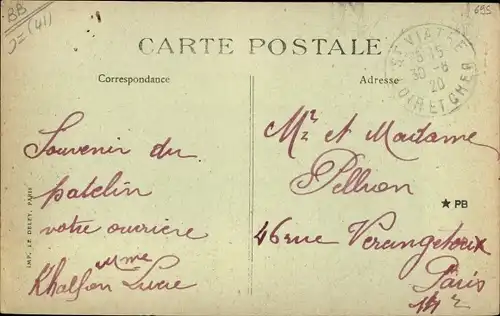 BB
(41)
695
CARTE POSTALE
Correspondance
Adresse
ST VIATRE
15
30 -8
20
LOIR ET CHER
Souvenir du
patelin
votre ouvrière
Mme
Khalfon Lucie
Mr et Madame
Pellion
46 rue Verangetorix
Paris
14e
★ PB
IMP. LE DELEY, PARIS